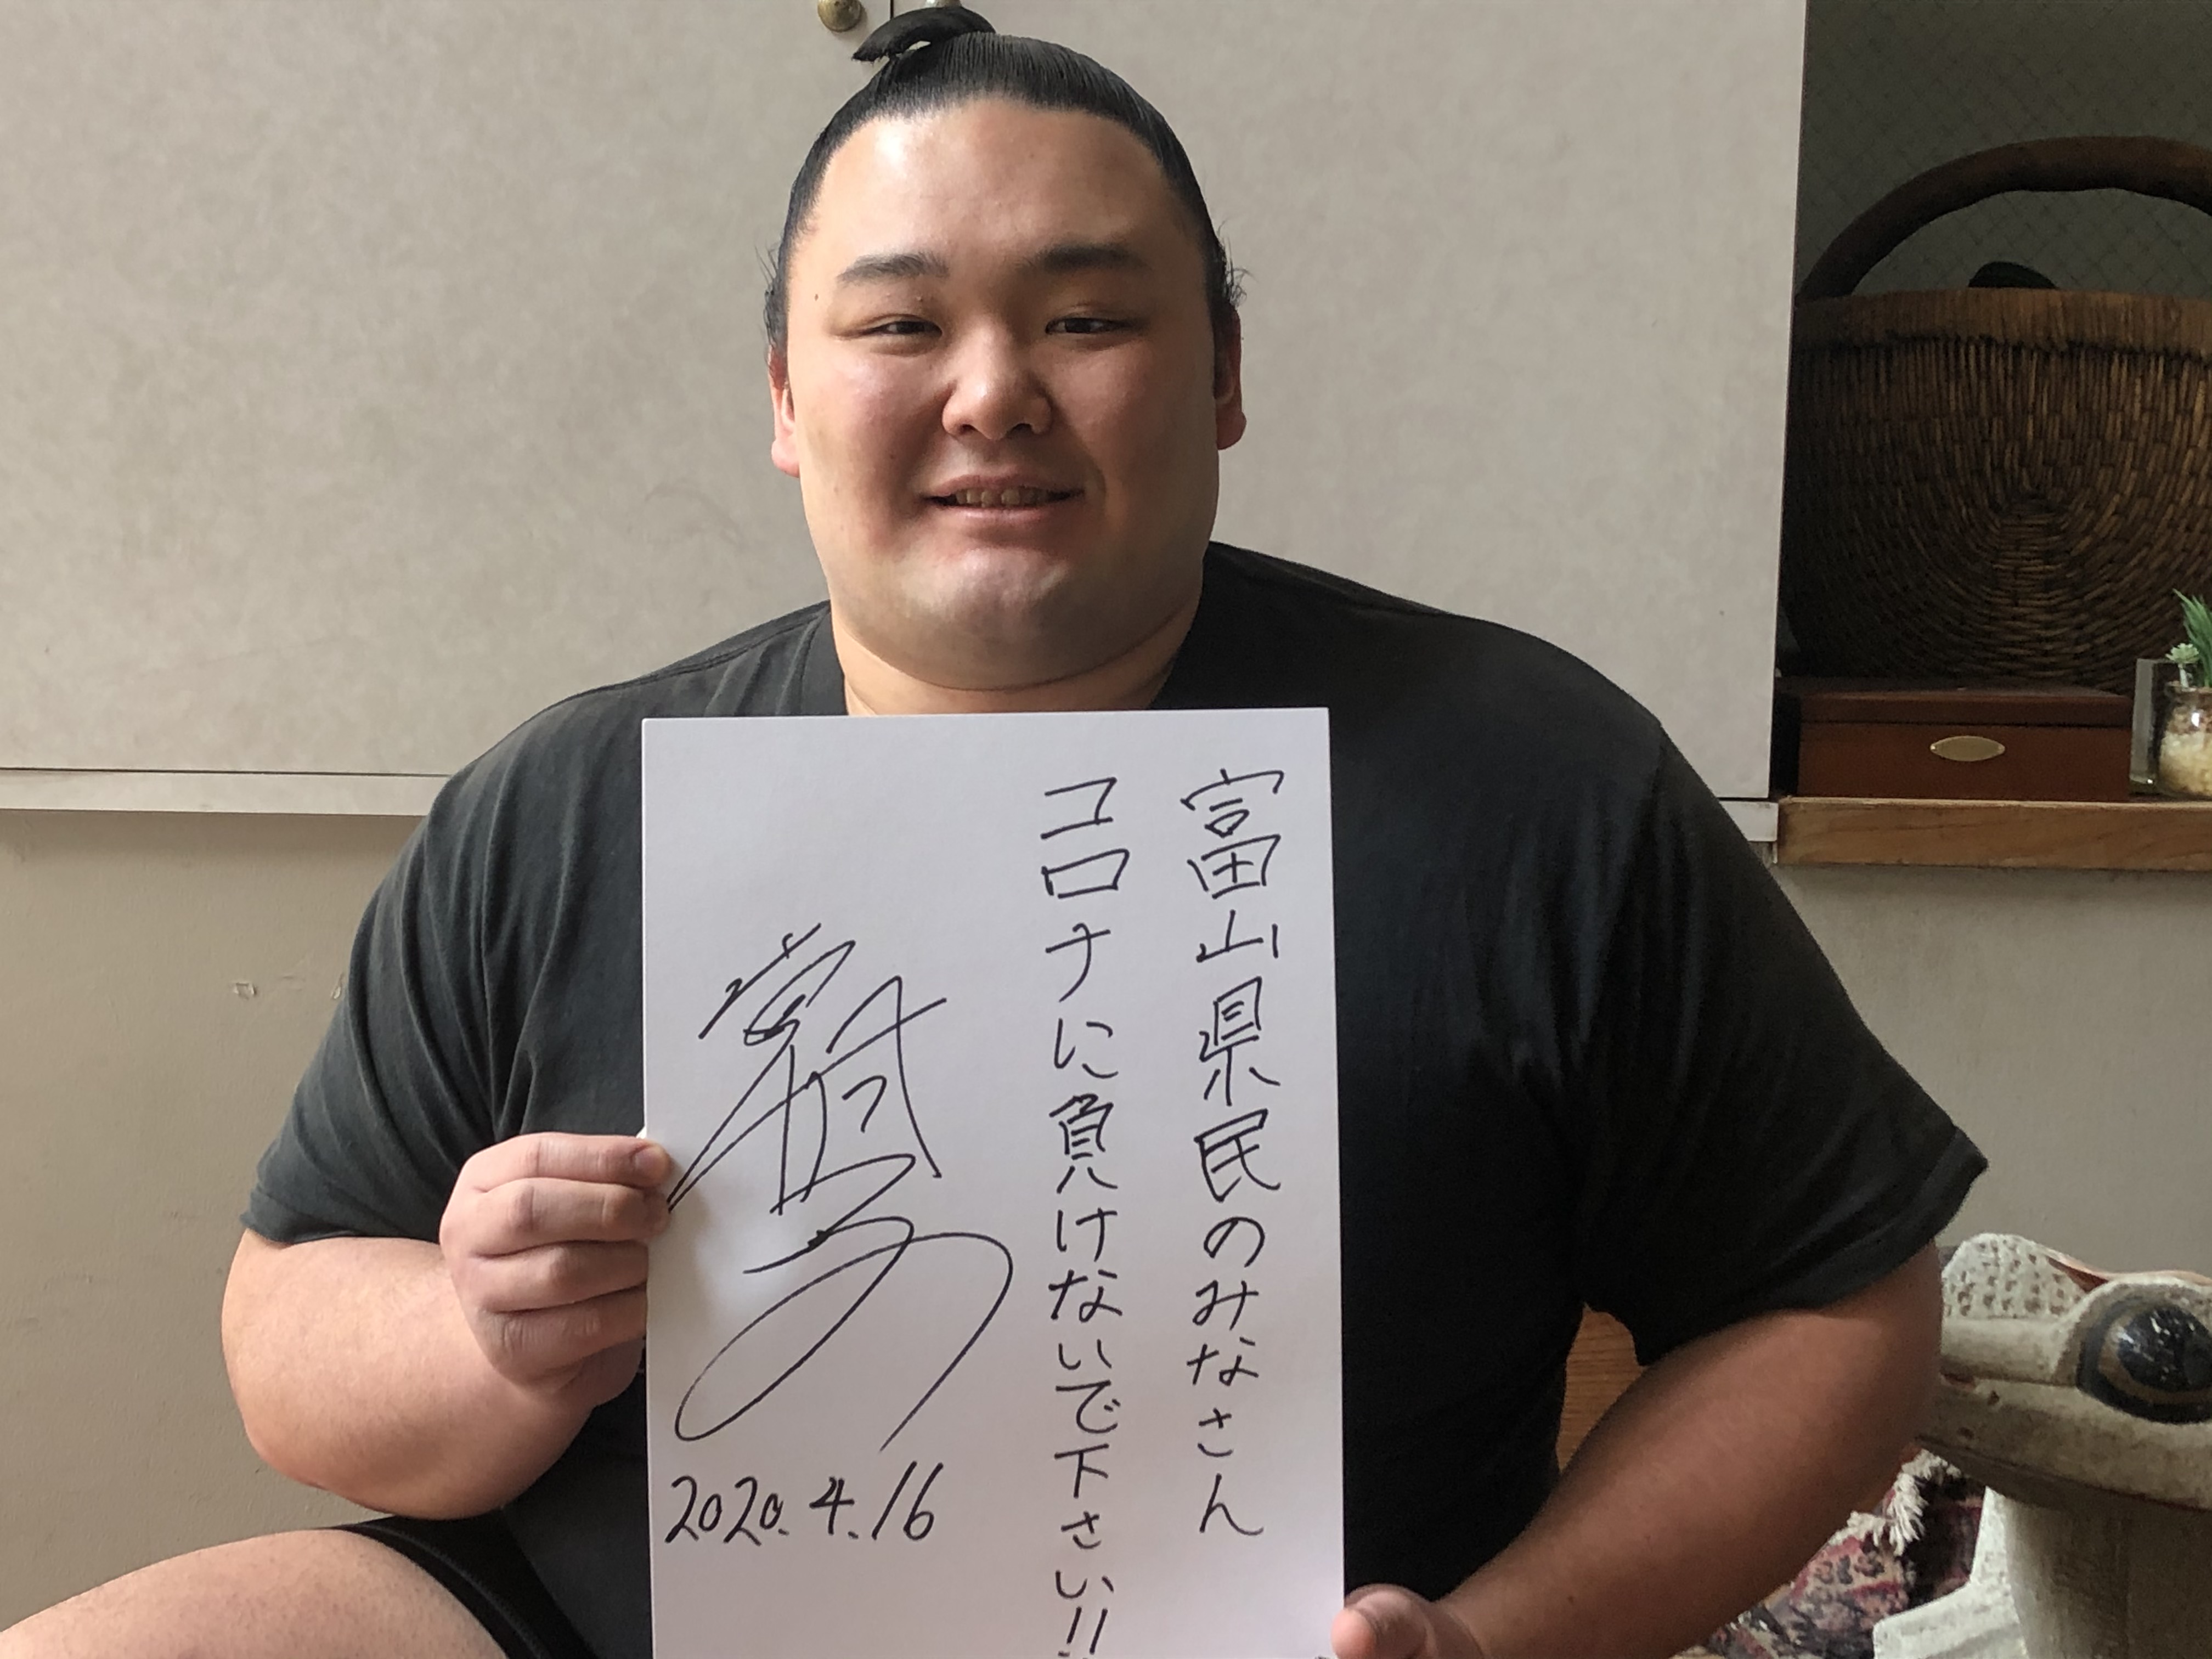 富山県民のみなさん
コロナに負けないで下さい!!
2020.4.16